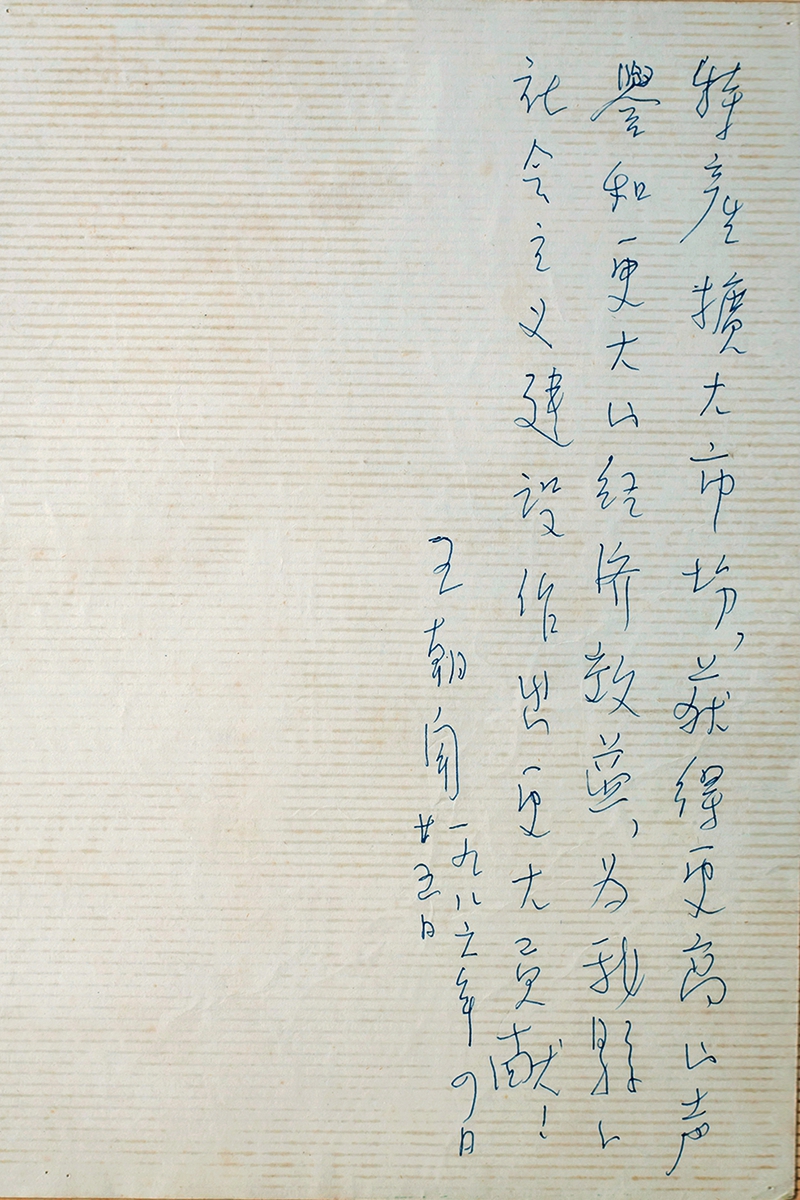 特產擴大市場，获得更高的声
譽和更大的经济效益，为我縣的
社会主义建設作出更大贡献！
王朝闻一九八六年四月
廿五日